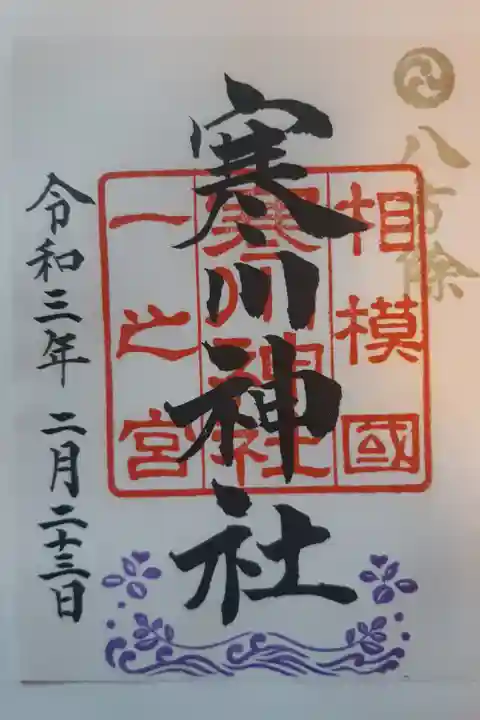 八方除
寒川神社
相模國
寒川神社
一之宮
令和三年 二月二十三日